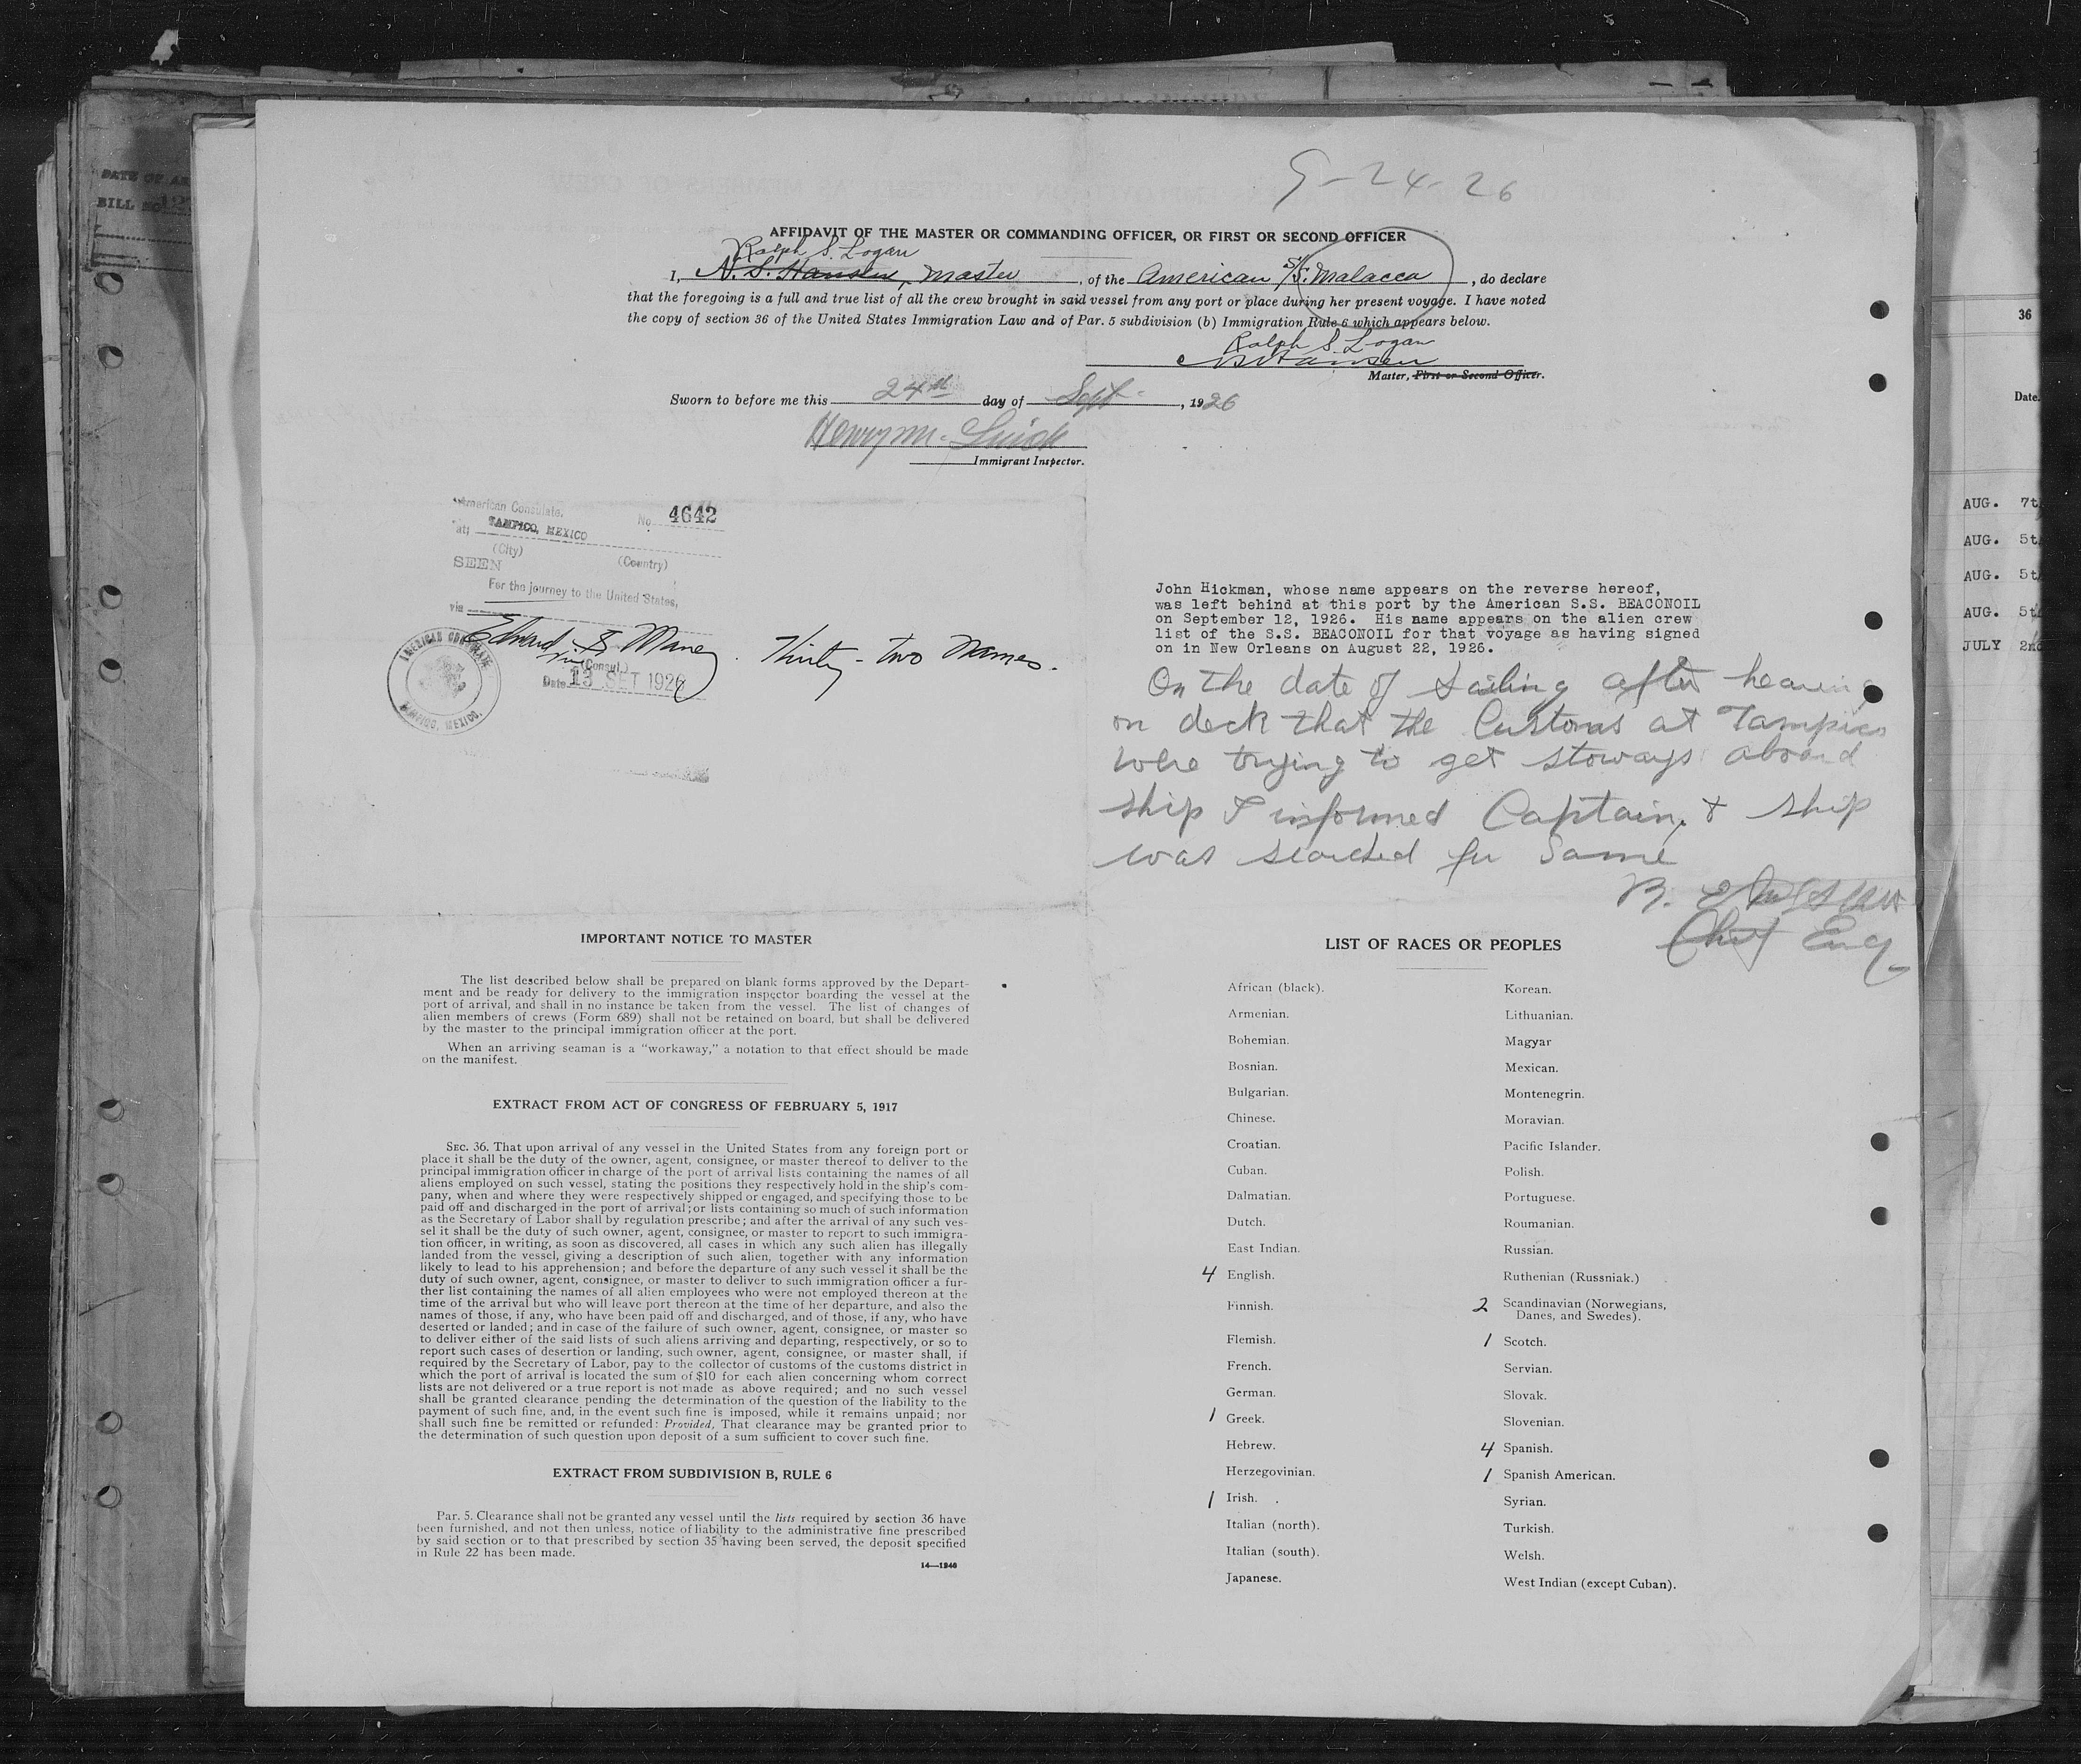 9-24-26
AFFIDAVIT OF THE MASTER OR COMMANDING OFFICER, OR FIRST OR SECOND OFFICER
Ralph S. Logan
I, N. S. Hansen, Master, of the American S/S. Malacca, do declare
that the foregoing is a full and true list of all the crew brought in said vessel from any port or place during her present voyage. I have noted
the copy of section 36 of the United States Immigration Law and of Par. 5 subdivision (b) Immigration Rule 6 which appears below.
Ralph S. Logan
NSHansen
Master, First or Second Officer.
Sworn to before me this 24th day of Sept., 1926
Henry M.
Immigrant Inspector.
American Consulate, No. 4642
at TAMPICO, MEXICO
(City) (Country)
SEEN
For the journey to the United States,
via
Edward S Maney. Thirty-two Names.
(Consul.)
Date 13 SET 1926
AMERICAN CONSULATE
TAMPICO, MEXICO.
John Hickman, whose name appears on the reverse hereof,
was left behind at this port by the American S.S. BEACONOIL
on September 12, 1926. His name appears on the alien crew
list of the S.S. BEACONOIL for that voyage as having signed
on in New Orleans on August 22, 1926.
On the date of sailing after hearing
on deck that the Customs at Tampico
were trying to get stoways aboard
ship I informed Captain, & ship
was searched for same
B.
Chief Eng
IMPORTANT NOTICE TO MASTER
The list described below shall be prepared on blank forms approved by the Depart-
ment and be ready for delivery to the immigration inspector boarding the vessel at the
port of arrival, and shall in no instance be taken from the vessel. The list of changes of
alien members of crews (Form 689) shall not be retained on board, but shall be delivered
by the master to the principal immigration officer at the port.
When an arriving seaman is a "workaway," a notation to that effect should be made
on the manifest.
EXTRACT FROM ACT OF CONGRESS OF FEBRUARY 5, 1917
SEC. 36. That upon arrival of any vessel in the United States from any foreign port or
place it shall be the duty of the owner, agent, consignee, or master thereof to deliver to the
principal immigration officer in charge of the port of arrival lists containing the names of all
aliens employed on such vessel, stating the positions they respectively hold in the ship's com-
pany, when and where they were respectively shipped or engaged, and specifying those to be
paid off and discharged in the port of arrival; or lists containing so much of such information
as the Secretary of Labor shall by regulation prescribe; and after the arrival of any such ves-
sel it shall be the duty of such owner, agent, consignee, or master to report to such immigra-
tion officer, in writing, as soon as discovered, all cases in which any such alien has illegally
landed from the vessel, giving a description of such alien, together with any information
likely to lead to his apprehension; and before the departure of any such vessel it shall be the
duty of such owner, agent, consignee, or master to deliver to such immigration officer a fur-
ther list containing the names of all alien employees who were not employed thereon at the
time of the arrival but who will leave port thereon at the time of her departure, and also the
names of those, if any, who have been paid off and discharged, and of those, if any, who have
deserted or landed; and in case of the failure of such owner, agent, consignee, or master so
to deliver either of the said lists of such aliens arriving and departing, respectively, or so to
report such cases of desertion or landing, such owner, agent, consignee, or master shall, if
required by the Secretary of Labor, pay to the collector of customs of the customs district in
which the port of arrival is located the sum of $10 for each alien concerning whom correct
lists are not delivered or a true report is not made as above required; and no such vessel
shall be granted clearance pending the determination of the question of the liability to the
payment of such fine, and, in the event such fine is imposed, while it remains unpaid; nor
shall such fine be remitted or refunded: Provided, That clearance may be granted prior to
the determination of such question upon deposit of a sum sufficient to cover such fine.
EXTRACT FROM SUBDIVISION B, RULE 6
Par. 5. Clearance shall not be granted any vessel until the lists required by section 36 have
been furnished, and not then unless, notice of liability to the administrative fine prescribed
by said section or to that prescribed by section 35 having been served, the deposit specified
in Rule 22 has been made.
14—1240
LIST OF RACES OR PEOPLES
African (black).
Armenian.
Bohemian.
Bosnian.
Bulgarian.
Chinese.
Croatian.
Cuban.
Dalmatian.
Dutch.
East Indian.
4 English.
Finnish.
Flemish.
French.
German.
1 Greek.
Hebrew.
Herzegovinian.
1 Irish.
Italian (north).
Italian (south).
Japanese.
Korean.
Lithuanian.
Magyar
Mexican.
Montenegrin.
Moravian.
Pacific Islander.
Polish.
Portuguese.
Roumanian.
Russian.
Ruthenian (Russniak.)
2 Scandinavian (Norwegians,
Danes, and Swedes).
1 Scotch.
Servian.
Slovak.
Slovenian.
4 Spanish.
1 Spanish American.
Syrian.
Turkish.
Welsh.
West Indian (except Cuban).
DATE OF AR
BILL NO
36
Date.
AUG. 7t
AUG. 5t
AUG. 5t
AUG. 5t
JULY 2n